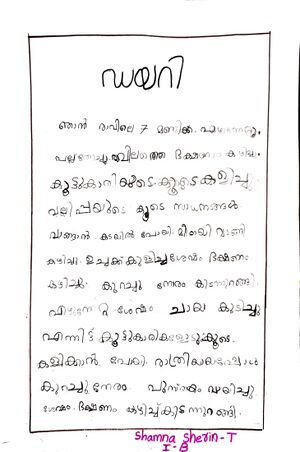 ഡയറി
ഞാൻ രാവിലെ 7 മണിക്ക് എഴുന്നേറ്റു.
പല്ലുതേച്ചു. രാവിലത്തെ ഭക്ഷണം കഴിച്ചു.
കൂട്ടുകാരിയുടെ കൂടെ കളിച്ചു.
വല്ലിപ്പയുടെ കൂടെ സാധനങ്ങൾ
വാങ്ങാൻ കടയിൽ പോയി. മിഠായി വാങ്ങി
കഴിച്ചു. ഉച്ചക്ക് കുളിച്ച ശേഷം ഭക്ഷണം
കഴിച്ചു. കുറച്ചു നേരം കിടന്നുറങ്ങി.
എഴുന്നേറ്റ ശേഷം ചായ കുടിച്ചു
എന്നിട്ട് കൂട്ടുകാരികളോടുകൂടെ
കളിക്കാൻ പോയി. രാത്രിയായപ്പോൾ
കുറച്ചു നേരം പുസ്തകം വായിച്ചു
ശേഷം ഭക്ഷണം കഴിച്ച് കിടന്നുറങ്ങി.
Shamna Sherin-T
I-B